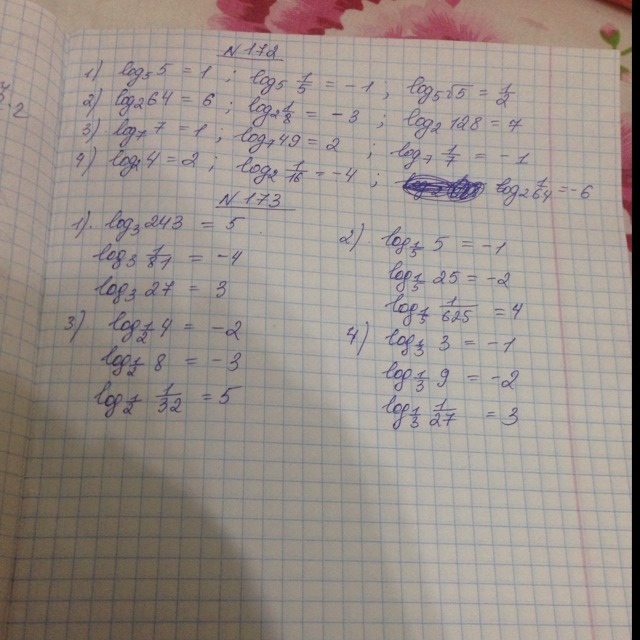 N 172
1) log₅5 = 1 ; log₅ 1/5 = -1 ; log₅√5 = 1/2
2) log₂64 = 6 ; log₂ 1/8 = -3 ; log₂ 128 = 7
3) log₇ 7 = 1 ; log₇49 = 2 ; log₇ 1/7 = -1
4) log₂4 = 2 ; log₂ 1/16 = -4 ; log₂ 1/64 = -6
N 173
1) log₃243 = 5
log₃ 1/81 = -4
log₃ 27 = 3
2) log_1/5 5 = -1
log_1/5 25 = -2
log_1/5 1/625 = 4
3) log_1/2 4 = -2
log_1/2 8 = -3
log_1/2 1/32 = 5
4) log_1/3 3 = -1
log_1/3 9 = -2
log_1/3 1/27 = 3